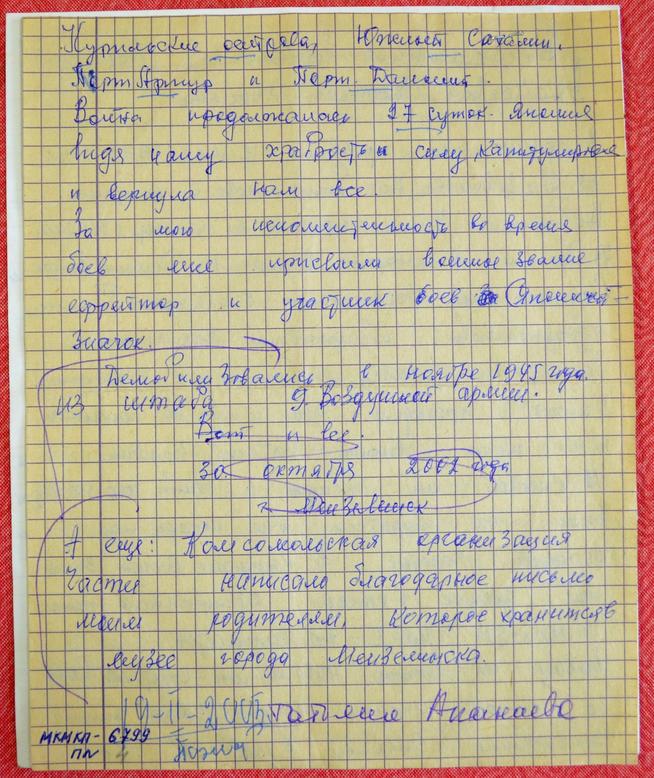 Курильские острова, Южный Сахалин.
Порт Артур и Порт Дальний.
Война продолжалась 27 суток. Япония
видя нашу храбрость и силу, капитулировала
и вернула нам все.
За мою исполнительность во время
боев мне присвоили военное звание
ефрейтор и участник боев Японией —
Значок.
Демобилизовались в ноябре 1945 года.
из штаба 9. Воздушной армии.
Вот и все.
30 октября 2002 года
г. Мензелинск
А еще: Комсомольская организация
Части написало благодарное письмо
моим родителям, которое хранится в
музее города Мензелинска.
19-II-2003. Татьяна Ананьева
МКМКП- 6799
ПИ 4